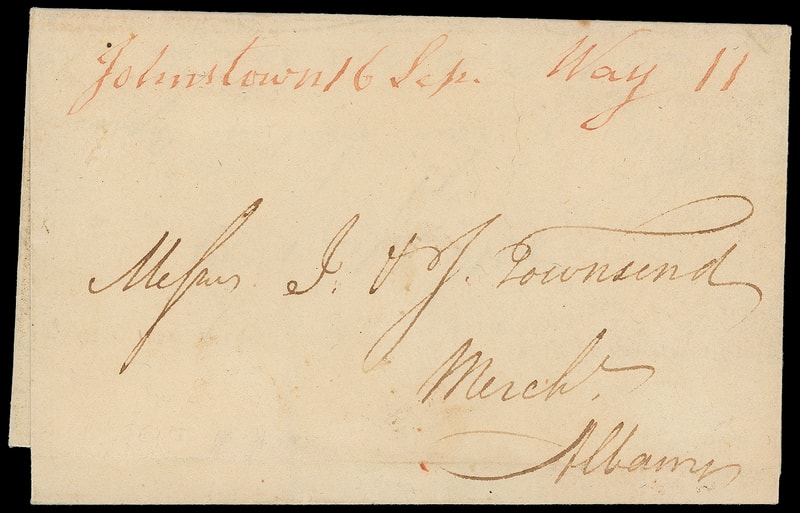 Johnstown 16 Sep. Way 11
Messrs. I. & J. Townsend
Mercht.
Albany